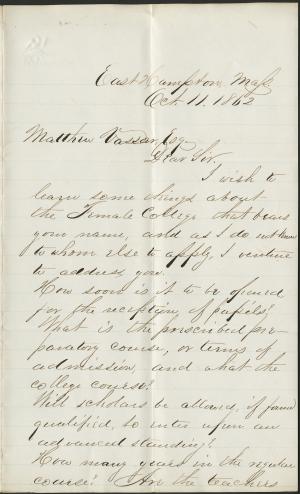 East Hampton, Mass.
Oct. 11. 1862
Matthew Vassar, Esq.
Dear Sir.
I wish to
learn some things about
the Female College that bears
your name, and as I do not know
to whom else to apply, I venture
to address you.
How soon is it to be opened
for the reception of pupils?
What is the prescribed pre-
paratory course, or terms of
admission, and what the
college course?
Will scholars be allowed, if found
qualified, to enter upon an
advanced standing?
How many years in the regular
course? Are the teachers